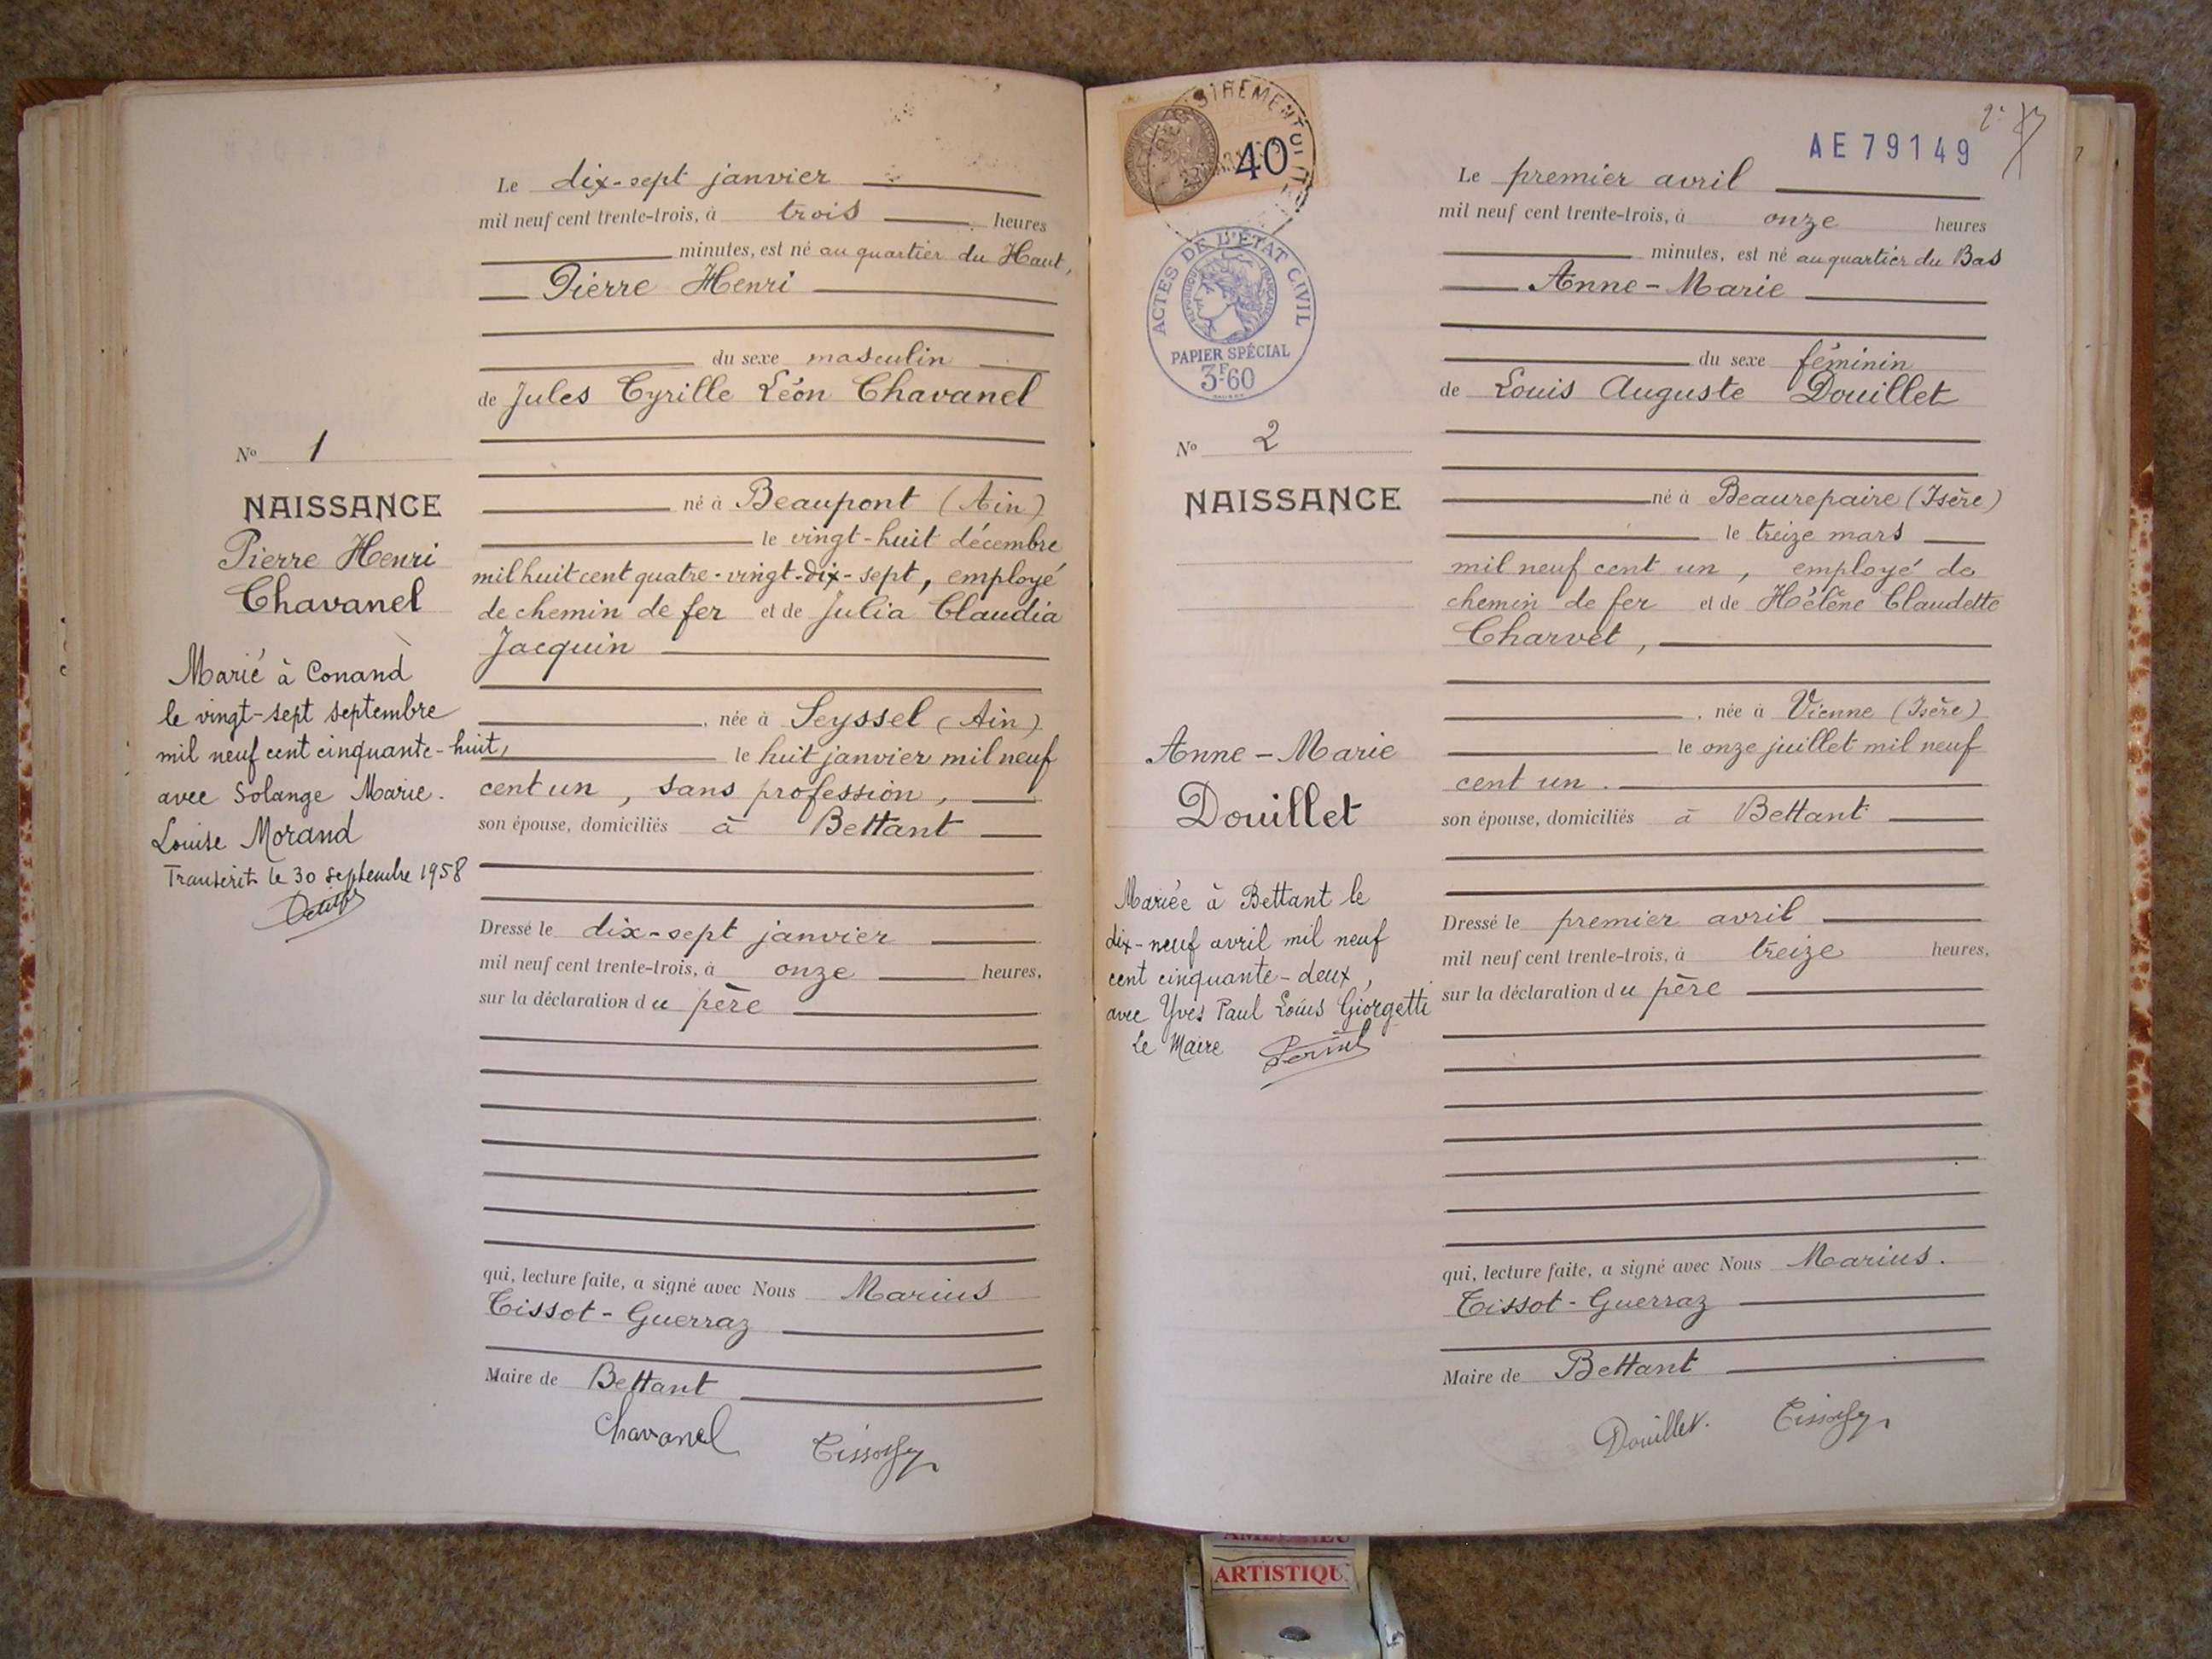 Le dix-sept janvier
mil neuf cent trente-trois, à trois heures
minutes, est né au quartier du Haut,
Pierre Henri
du sexe masculin
de Jules Cyrille Léon Chavanel
né à Beaupont (Ain)
le vingt-huit décembre
mil huit cent quatre-vingt-dix-sept, employé
de chemin de fer et de Julia Claudia
Jacquin
, née à Seyssel (Ain)
le huit janvier mil neuf
cent un, sans profession,
son épouse, domiciliés à Bettant
Dressé le dix-sept janvier
mil neuf cent trente-trois, à onze heures,
sur la déclaration du père
qui, lecture faite, a signé avec Nous Marius
Tissot-Guerraz
Maire de Bettant
Chavanel
No 1
NAISSANCE
Pierre Henri
Chavanel
Marié à Conand
le vingt-sept septembre
mil neuf cent cinquante-huit,
avec Solange Marie.
Louise Morand
Transcrit le 30 septembre 1958
40
ACTES DE L'ÉTAT CIVIL
RÉPUBLIQUE FRANÇAISE
PAPIER SPÉCIAL
3F60
AE 79149
Le premier avril
mil neuf cent trente-trois, à onze heures
minutes, est né au quartier du Bas
Anne-Marie
du sexe féminin
de Louis Auguste Douillet
né à Beaurepaire (Isère)
le treize mars
mil neuf cent un, employé de
chemin de fer et de Hélène Claudette
Charvet,
, née à Vienne (Isère)
le onze juillet mil neuf
cent un.
son épouse, domiciliés à Bettant
Dressé le premier avril
mil neuf cent trente-trois, à treize heures,
sur la déclaration du père
qui, lecture faite, a signé avec Nous Marius.
Tissot-Guerraz
Maire de Bettant
Douillet.
No 2
NAISSANCE
Anne-Marie
Douillet
Mariée à Bettant le
dix-neuf avril mil neuf
cent cinquante-deux,
avec Yves Paul Louis Giorgetti
Le Maire
ARTISTIQU